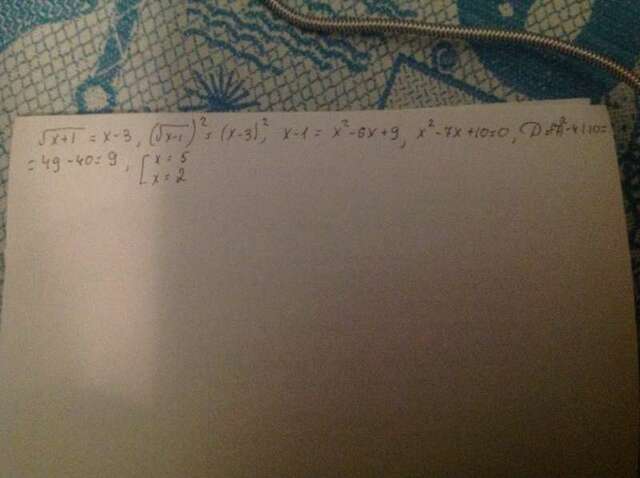 √x+1 = x-3, (√x-1)² = (x-3)², x-1 = x²-6x+9, x²-7x+10=0, D=(-7)²-4·1·10=
= 49-40=9, [x=5
x=2